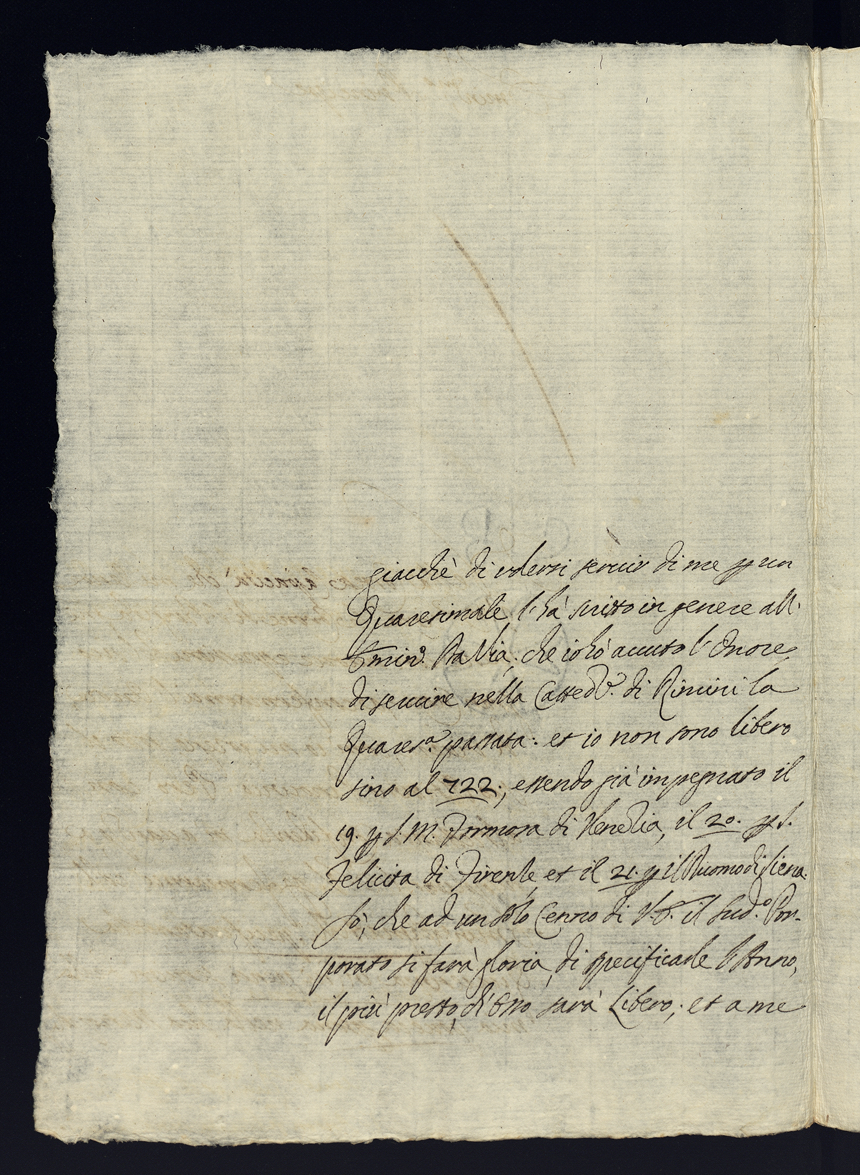 giacchè di volersi servir di me p un
Quaresimale l'hà scritto in genere all'
Emin. Davia. che io hò avuto l'Onore
di servire nella Catted. di Rimini la
Quares.ª passata: et io non sono libero
sino al 722., essendo già impegnato il
19. p S. M. Formosa di Venezia, il 20. p S.
Felicita di Firenze, et il 21. p il Duomo di Siena.
Sò, che ad un solo Cenno di V. il Sud.º Por-
porato si farà gloria di specificarle l'Anno,
il più presto, ch'Esso sarà Libero; et a me